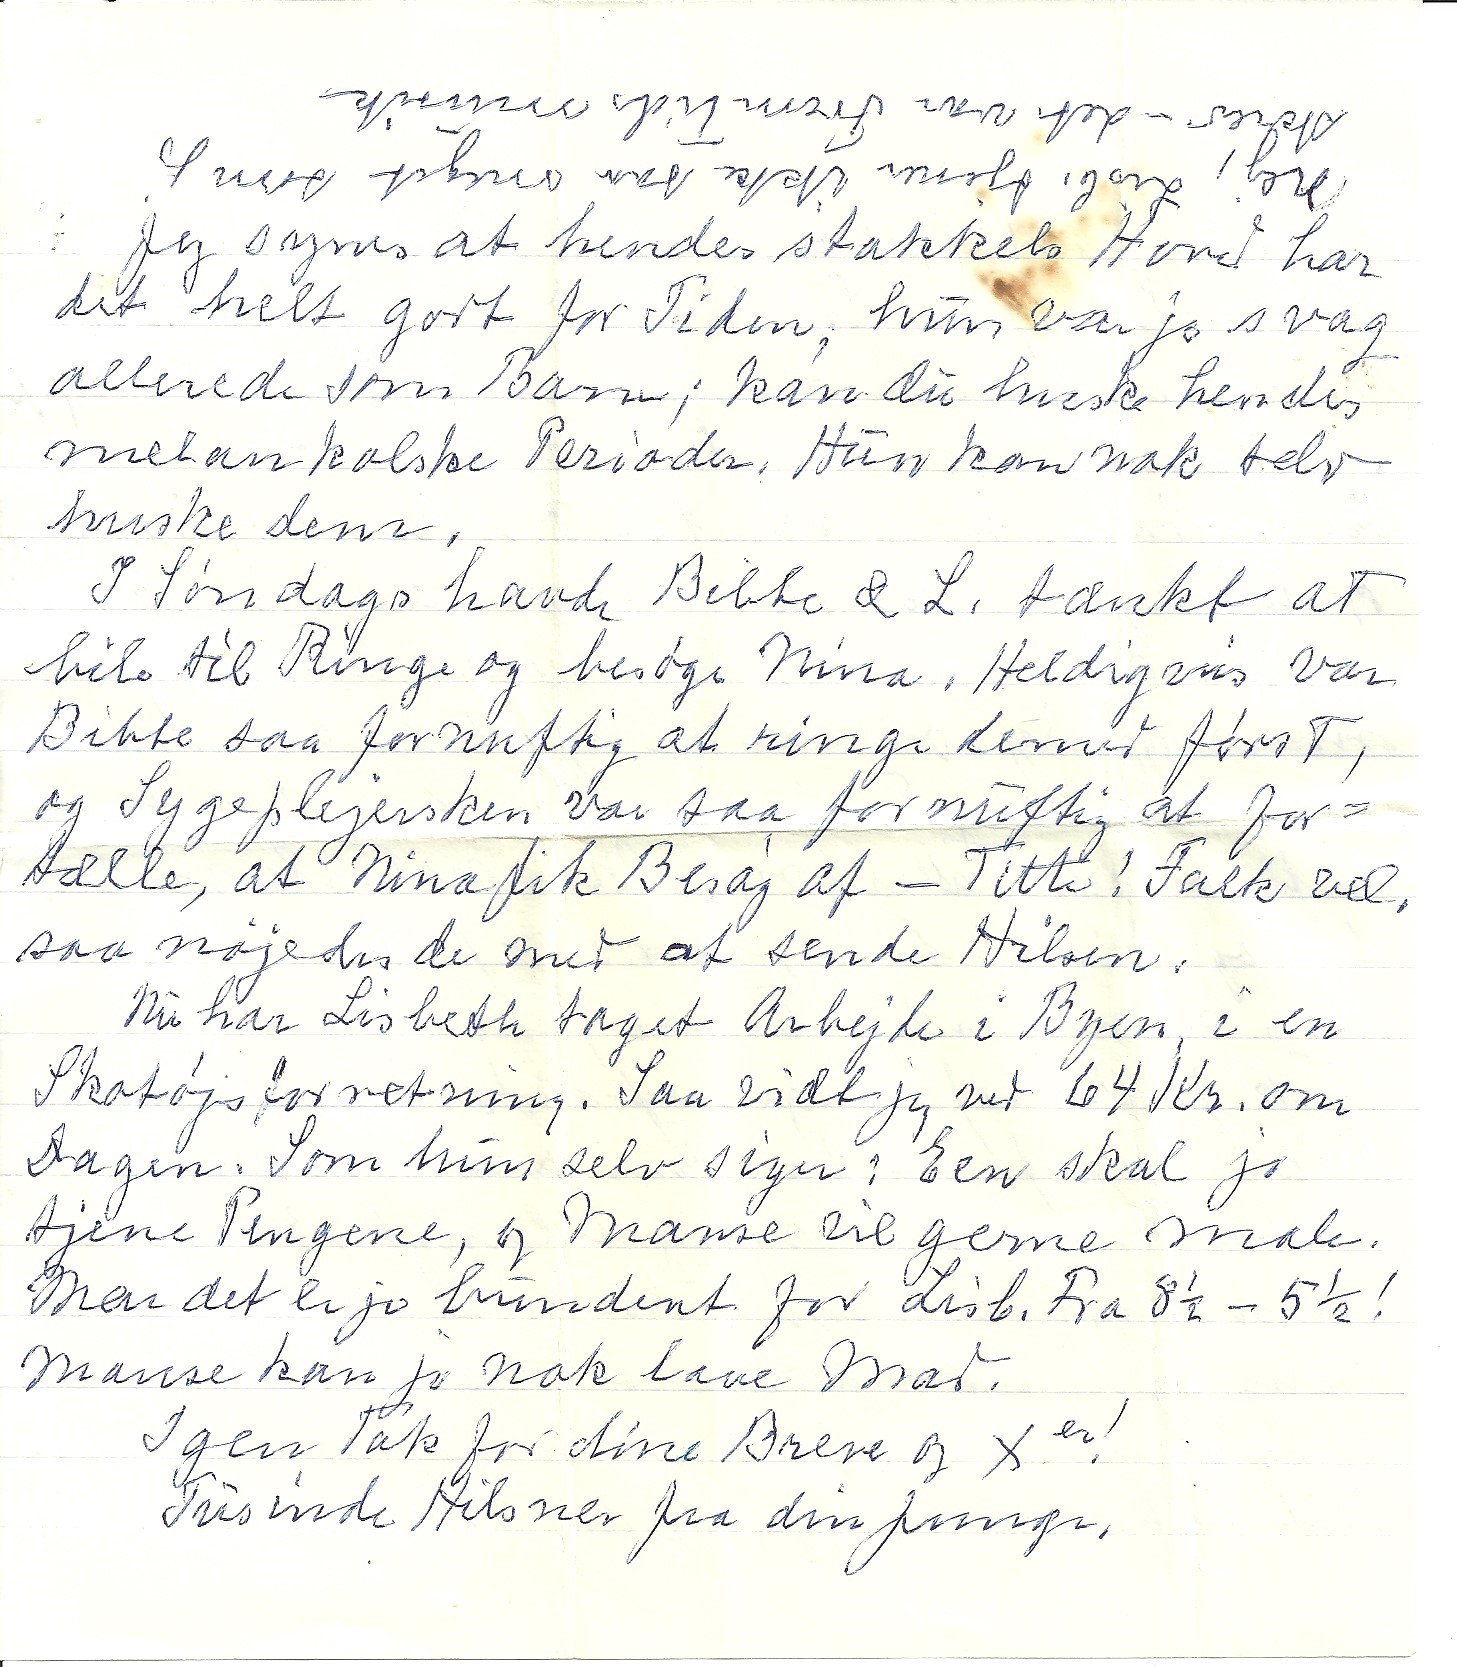 Jeg synes at hendes stakkels Hoved har
det helt godt for Tiden, hun var jo svag
allerede som Barn; kan du huske hendes
melankolske Perioder. Hun kan nok selv
huske dem.
I Søndags havde Bibbe & L. tænkt at
bile til Ringe og besøge Nina. Heldigvis var
Bibbe saa fornuftig at ringe derned først,
og Sygeplejersken var saa fornuftig at for=
tælle, at Nina fik Besøg af – Titte! Falk vel,
saa nøjedes de med at sende Hilsen.
Nu har Lisbeth taget Arbejde i Byen, i en
Skotøjsforretning. Saa vidt jeg ved 64 Kr. om
Dagen. Som hun selv siger: Een skal jo
tjene Pengene, og Manse vil gerne male.
Men det er jo bundent for Lisb. Fra 8½ – 5½!
Manse kan jo nok lave Mad.
Igen Tak for dine Breve og X er!
Tusinde Hilsner fra din Junge.
Nej! Lisb. tjener ikke saa meget som I
skrev – det var Fremtidsmusik